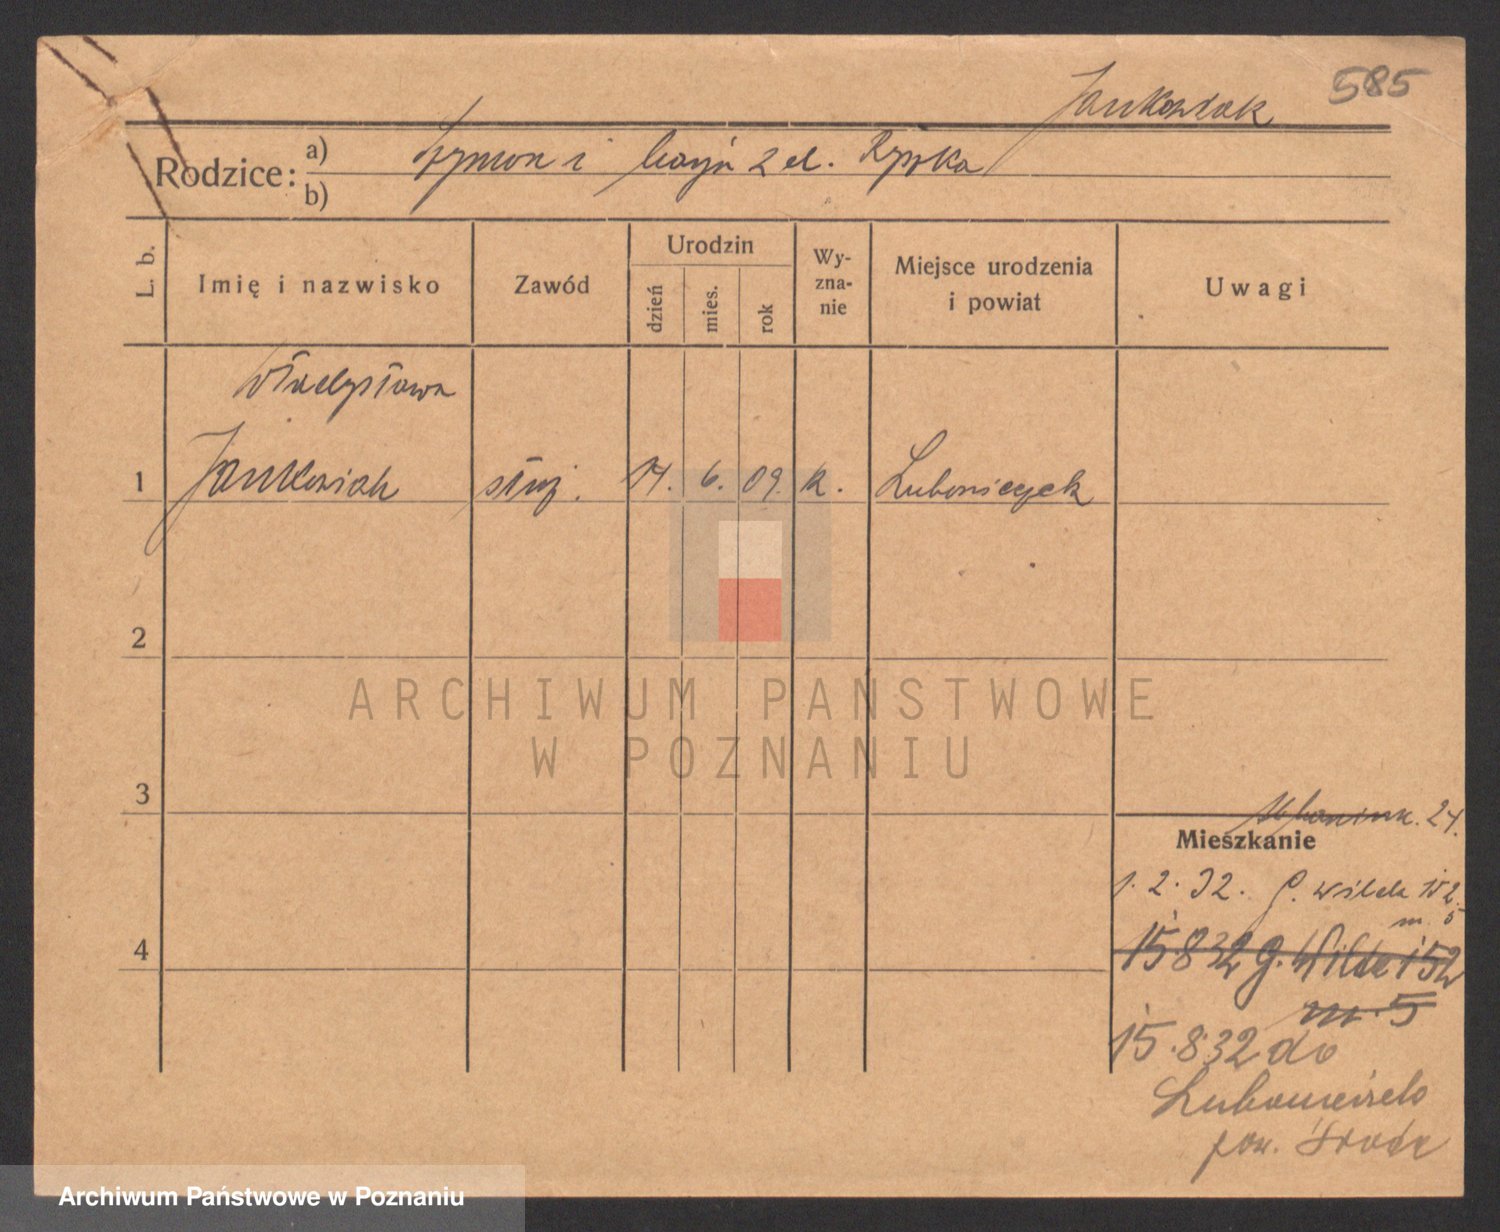 585
Jankowiak
Rodzice: a) b) Szymon i z d. Rybska
L. b.
Imię i nazwisko
Zawód
Urodzin
dzień
mies.
rok
Wy-
zna-
nie
Miejsce urodzenia
i powiat
Uwagi
Władysława
1 Jankowiak służ. 14. 6. 09. k. Lubonieczek
2
3
24.
Mieszkanie
1. 2. 32. G. Wilda 152
m. 5
4
15.8 32 G. Wilda 152
m. 5
15.8 32 do
pow. Środa
ARCHIWUM PAŃSTWOWE
W POZNANIU
Archiwum Państwowe w Poznaniu